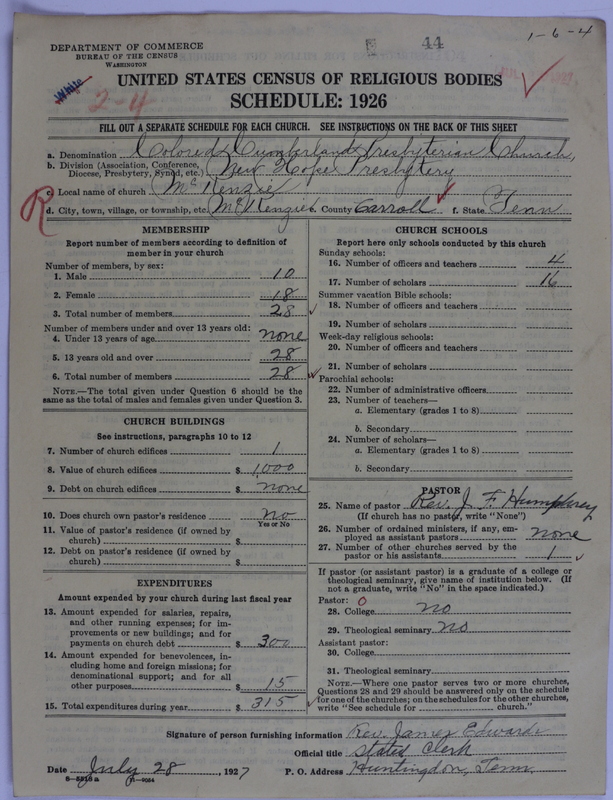 1-6-4
44
DEPARTMENT OF COMMERCE
BUREAU OF THE CENSUS
WASHINGTON
White
2-4
UNITED STATES CENSUS OF RELIGIOUS BODIES
SCHEDULE: 1926
FILL OUT A SEPARATE SCHEDULE FOR EACH CHURCH. SEE INSTRUCTIONS ON THE BACK OF THIS SHEET
a. Denomination Colored Cumberland Presbyterian Church,
b. Division (Association, Conference, Diocese, Presbytery, Synod, etc.) New Hope Presbytery
c. Local name of church McKenzie
R
d. City, town, village, or township, etc. McKenzie e. County Carroll f. State Tenn
MEMBERSHIP
Report number of members according to definition of
member in your church
Number of members, by sex:
1. Male 10
2. Female 18
3. Total number of members 28
Number of members under and over 13 years old:
4. Under 13 years of age none
5. 13 years old and over 28
6. Total number of members 28
NOTE.—The total given under Question 6 should be
same as the total of males and females given under Question 3.
CHURCH BUILDINGS
See instructions, paragraphs 10 to 12
7. Number of church edifices 1
8. Value of church edifices $ 1,000
9. Debt on church edifices $ none
10. Does church own pastor's residence no
Yes or No
11. Value of pastor's residence (if owned by
church) $
12. Debt on pastor's residence (if owned by
church) $
EXPENDITURES
Amount expended by your church during last fiscal year
13. Amount expended for salaries, repairs,
and other running expenses; for im-
provements or new buildings; and for
payments on church debt $ 300
14. Amount expended for benevolences, in-
cluding home and foreign missions; for
denominational support; and for all
other purposes $ 15
15. Total expenditures during year $ 315
CHURCH SCHOOLS
Report here only schools conducted by this church
Sunday schools:
16. Number of officers and teachers 4
17. Number of scholars 16
Summer vacation Bible schools:
18. Number of officers and teachers
19. Number of scholars
Week-day religious schools:
20. Number of officers and teachers
21. Number of scholars
Parochial schools:
22. Number of administrative officers
23. Number of teachers—
a. Elementary (grades 1 to 8)
b. Secondary
24. Number of scholars—
a. Elementary (grades 1 to 8)
b. Secondary
PASTOR
25. Name of pastor Rev. J. F. Humphrey
(If church has no pastor, write "None")
26. Number of ordained ministers, if any, em-
ployed as assistant pastors none
27. Number of other churches served by the
pastor or his assistants 1
If pastor (or assistant pastor) is a graduate of a college or
theological seminary, give name of institution below. (If
not a graduate, write "No" in the space indicated.)
Pastor: 0
28. College no
29. Theological seminary no
Assistant pastor:
30. College
31. Theological seminary
NOTE.—Where one pastor serves two or more churches,
Questions 28 and 29 should be answered only on the schedule
for one of the churches; on the schedules for the other churches,
write "See schedule for church."
Signature of person furnishing information Rev. James Edwards
Official title Stated Clerk
Date July 28, 1927 P. O. Address Huntingdon, Tenn.